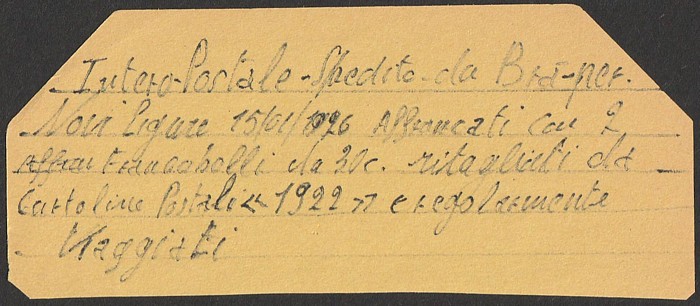 Intero Postale - Spedito - da Bra - per.
Novi Ligure 15/01/1926 Affrancati con 2
Affran Francobolli da 30c. ritagliati da -
Cartoline Postali « 1922 » e regolarmente
- Viaggiati